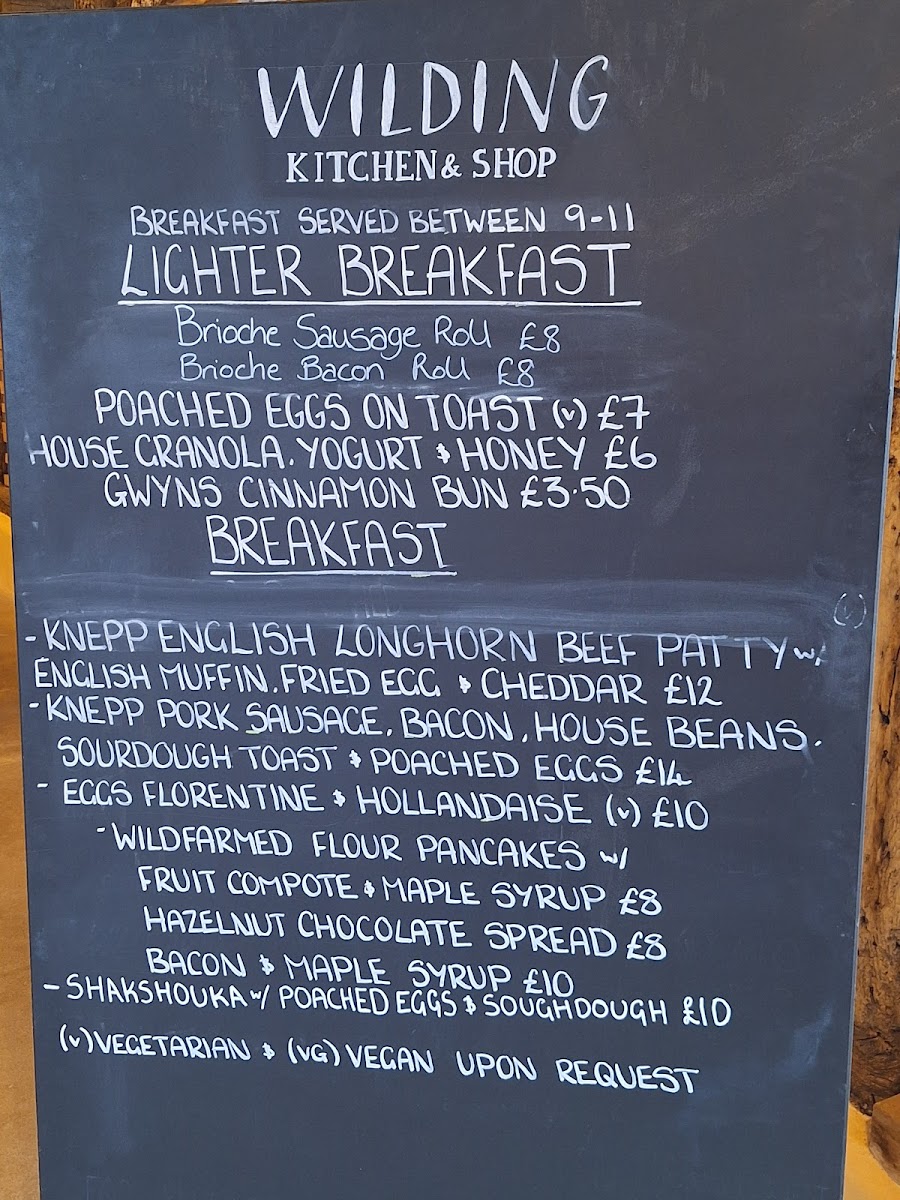 WILDING
KITCHEN & SHOP
BREAKFAST SERVED BETWEEN 9-11
LIGHTER BREAKFAST
Brioche Sausage Roll £8
Brioche Bacon Roll £8
POACHED EGGS ON TOAST (v) £7
HOUSE GRANOLA, YOGURT & HONEY £6
GWYNS CINNAMON BUN £3.50
BREAKFAST
- KNEPP ENGLISH LONGHORN BEEF PATTY w/
ENGLISH MUFFIN, FRIED EGG & CHEDDAR £12
- KNEPP PORK SAUSAGE, BACON, HOUSE BEANS,
SOURDOUGH TOAST & POACHED EGGS £14
- EGGS FLORENTINE & HOLLANDAISE (v) £10
- WILDFARMED FLOUR PANCAKES w/
FRUIT COMPOTE & MAPLE SYRUP £8
HAZELNUT CHOCOLATE SPREAD £8
BACON & MAPLE SYRUP £10
- SHAKSHOUKA w/ POACHED EGGS & SOUGHDOUGH £10
(v) VEGETARIAN & (VG) VEGAN UPON REQUEST